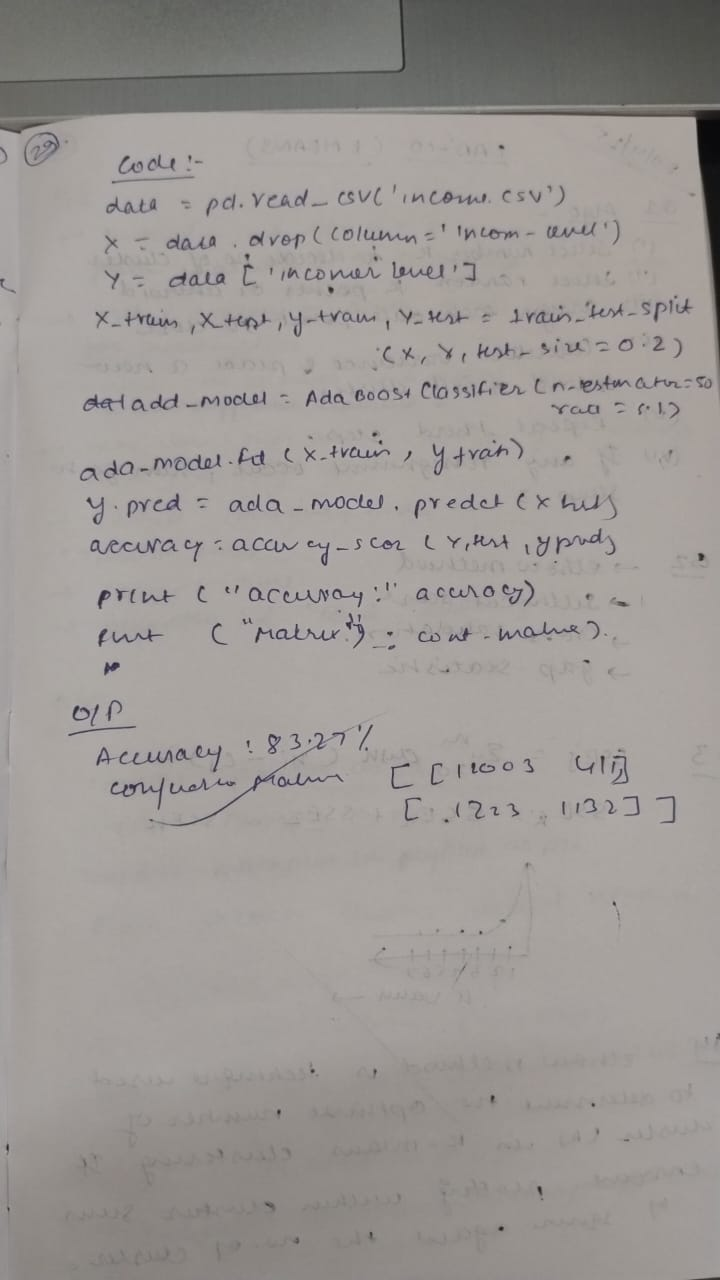 29.
Code :-
data = pd.read_csv('income.csv')
X = data.drop(column='Incom-level')
Y = data['incomer level']
X_train, X test, y-train, Y_test = train_test_split
(X, Y, test-size = 0.2)
add_model = AdaBoost Classifier (n-estimator=50
rate = 0.1)
ada-model.fit (X-train, y train)
y.pred = ada_model.predct (X test)
accuracy = accuracy_scor (Y, test, y pred)
print ("accuray:" accuracy)
print ("Matrix") : conf-matrix).
O/P
Accuracy : 83.27%
confusion Matrix [[ 411]
[.1223 1132]]